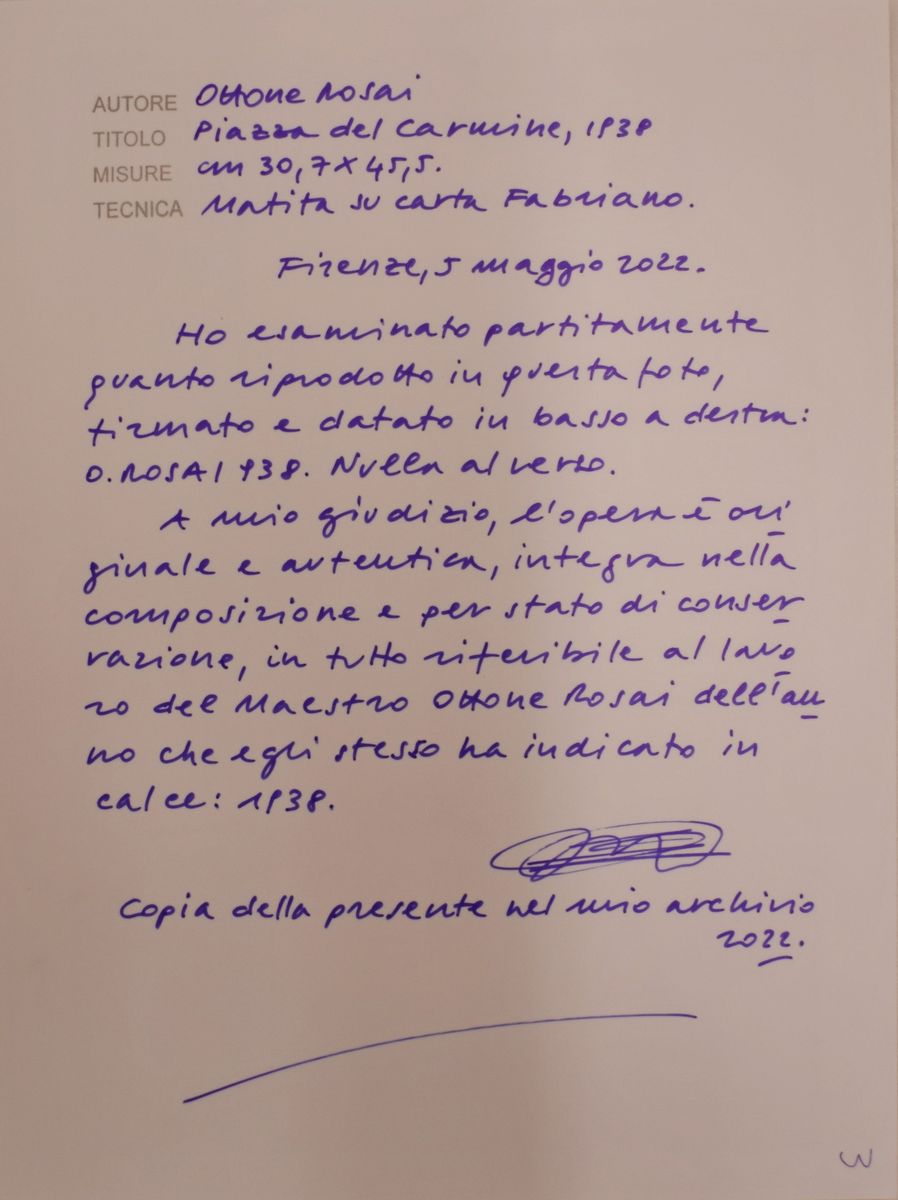 AUTORE Ottone Rosai
TITOLO Piazza del Carmine, 1938
MISURE cm 30,7 x 45,5.
TECNICA Matita su carta Fabriano.
Firenze, 5 maggio 2022.
Ho esaminato partitamente
quanto riprodotto in questa foto,
firmato e datato in basso a destra:
O. ROSAI 938. Nulla al verso.
A mio giudizio, l'opera è ori
ginale e autentica, integra nella
composizione e per stato di conser
vazione, in tutto riferibile al lavo
ro del Maestro Ottone Rosai dell'an
no che egli stesso ha indicato in
calce: 1938.
Copia della presente nel mio archivio
2022.